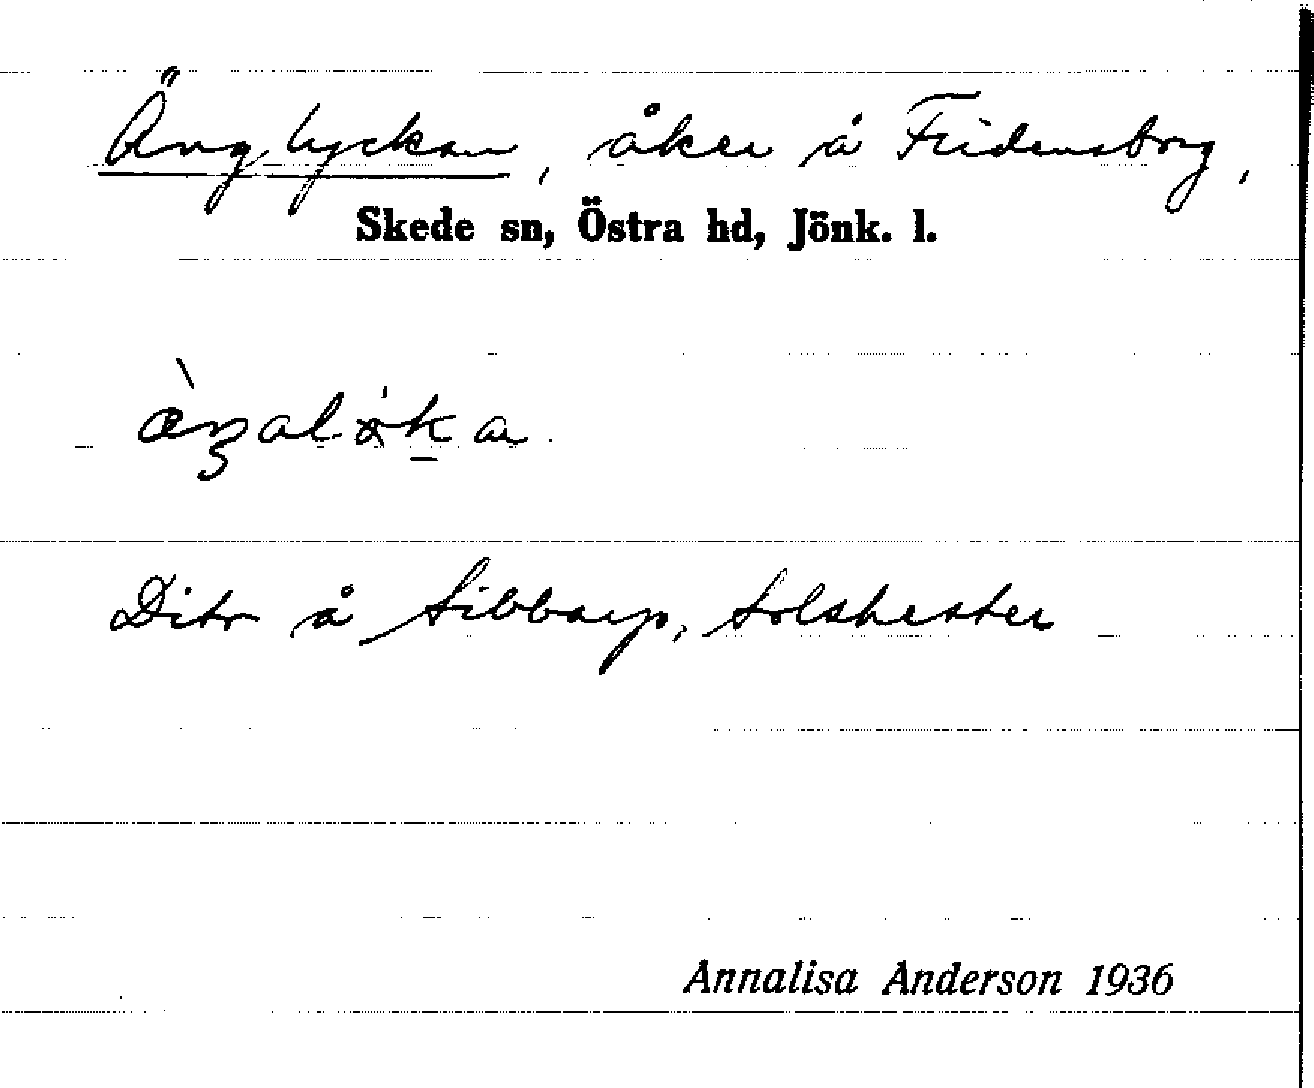 Änglyckan, åker å Fridensborg,
Skede sn, Östra hd, Jönk. l.
Dito å Sibbarp,
Annalisa Anderson 1936